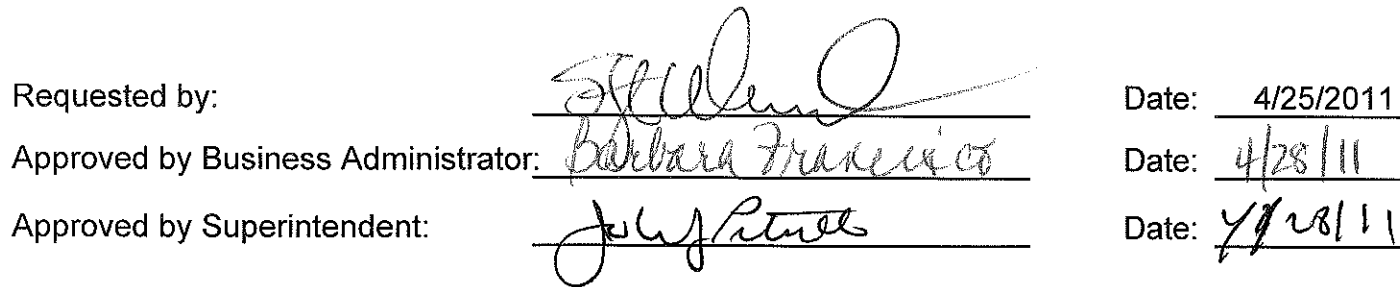 Requested by: Date: 4/25/2011
Approved by Business Administrator: Barbara Francisco Date: 4/28/11
Approved by Superintendent: Date: 4/28/11